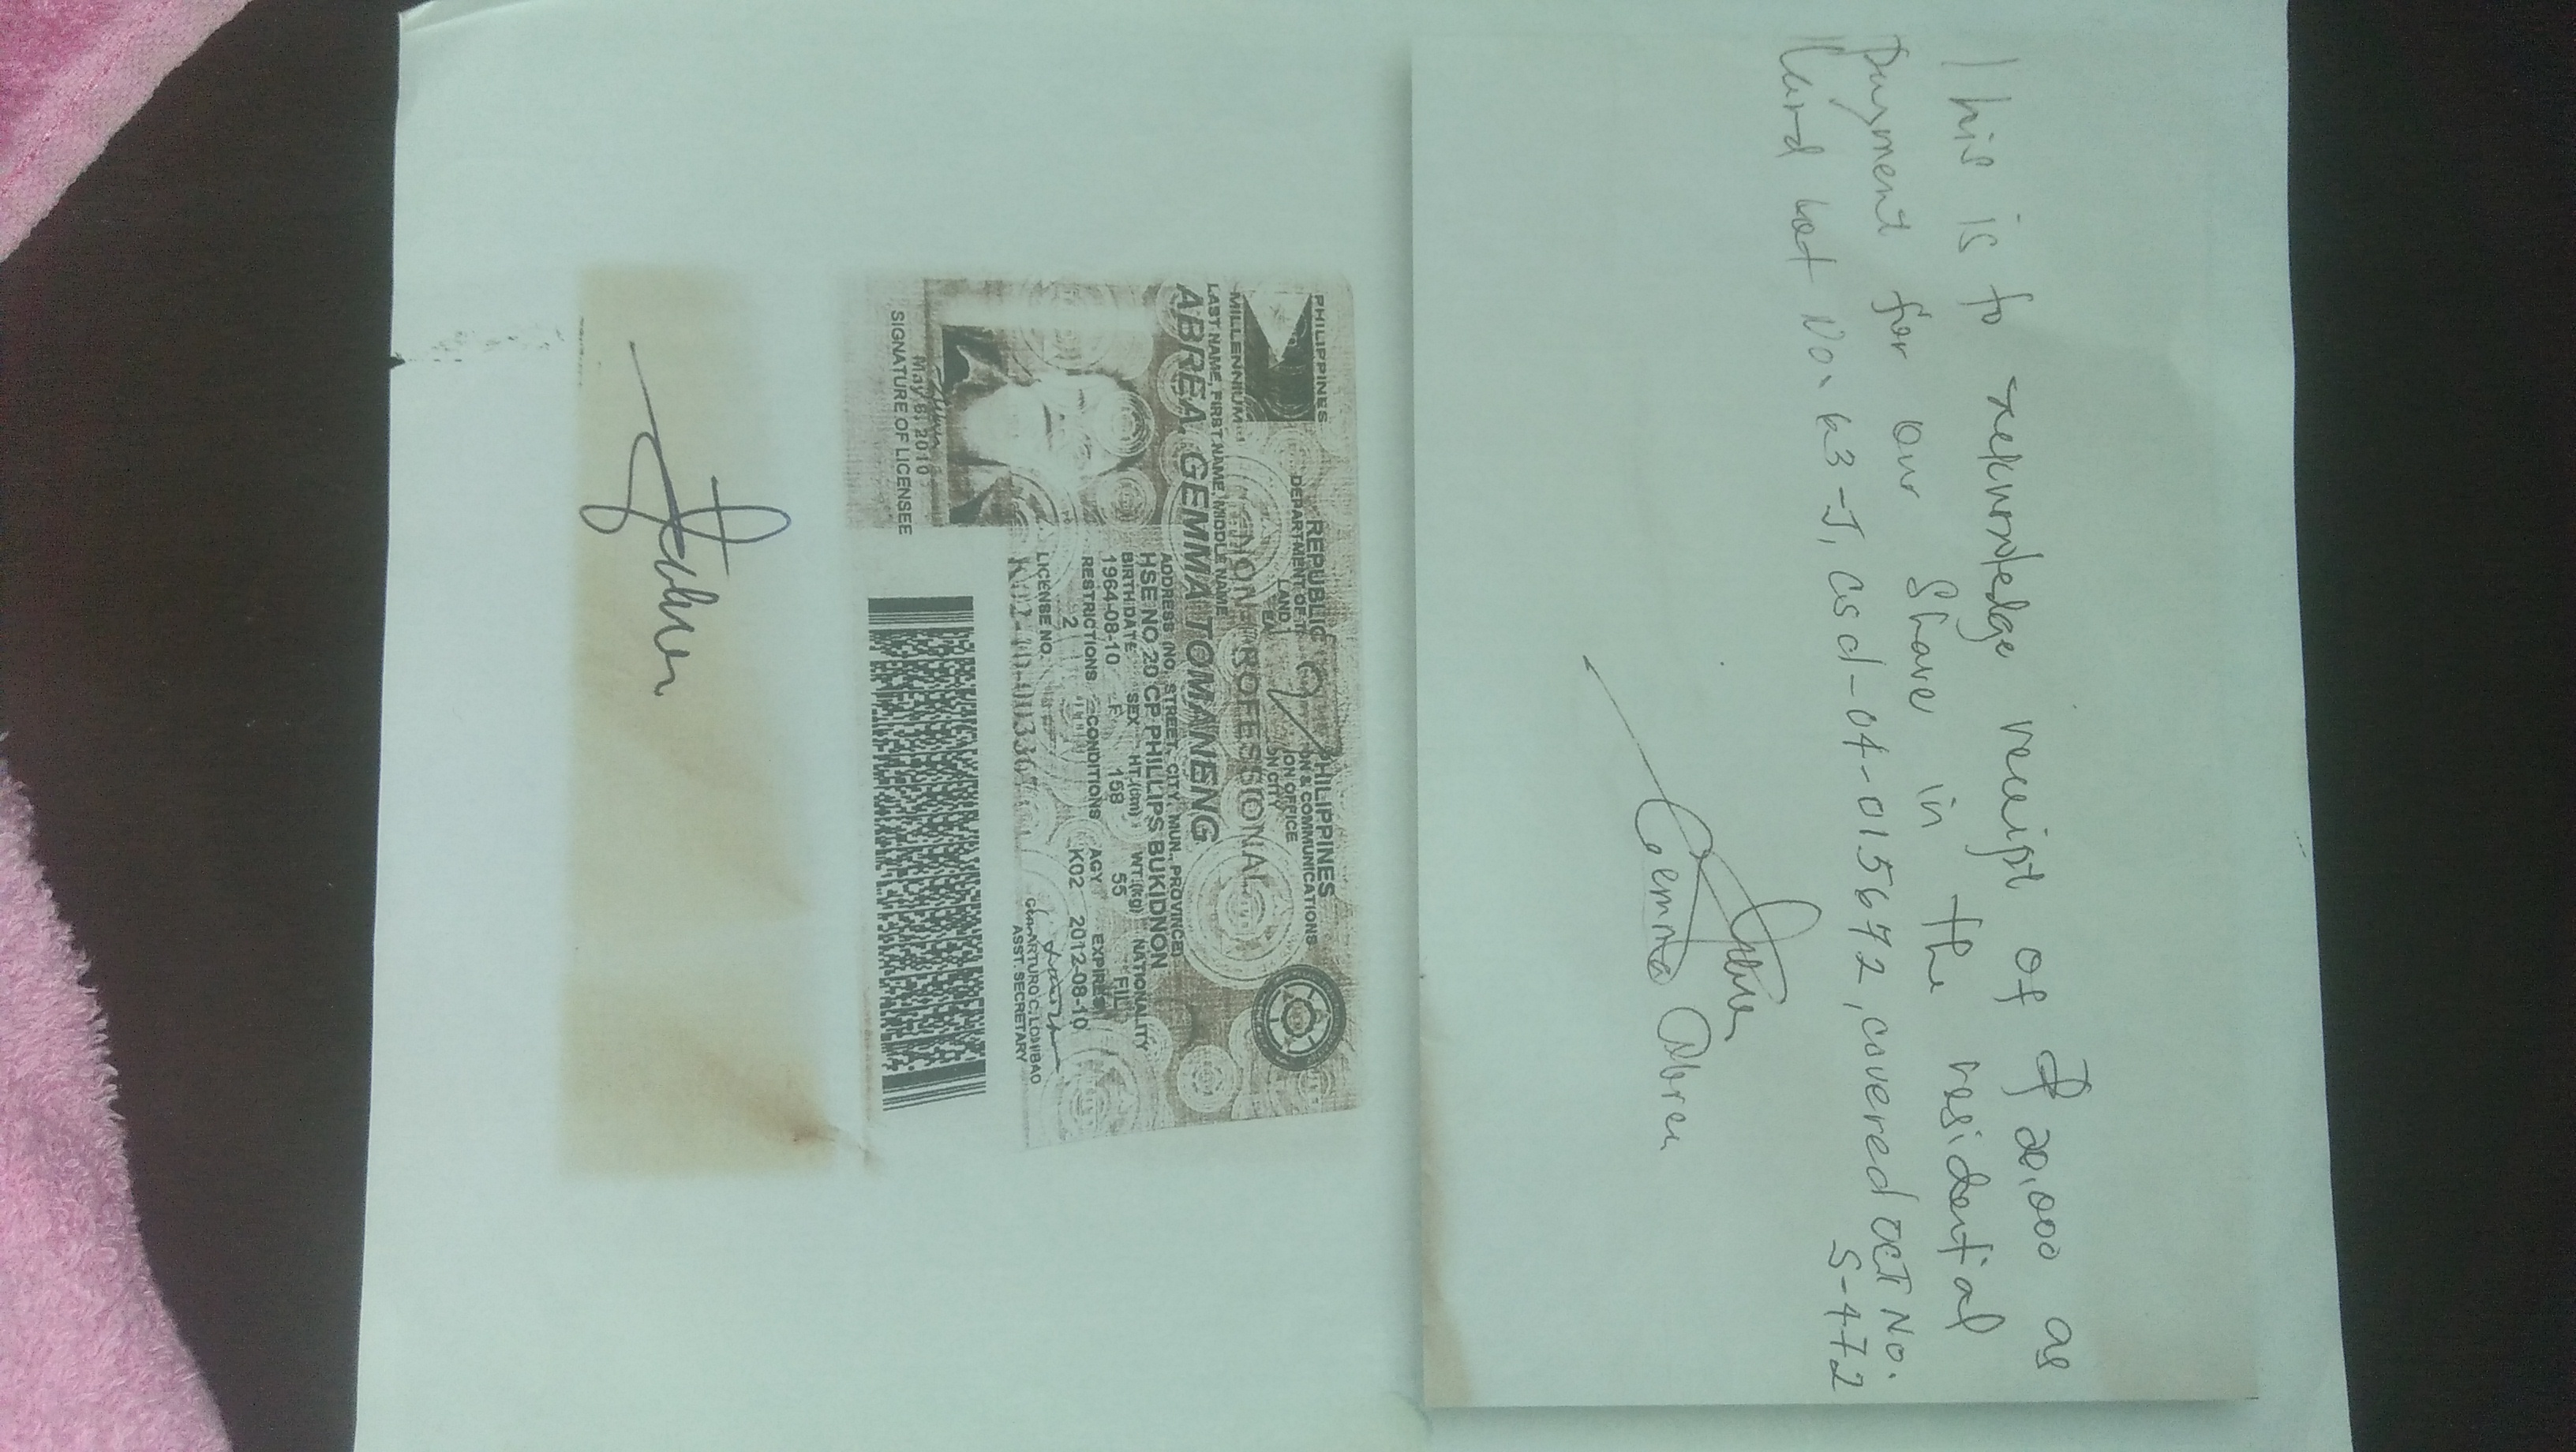 This is to acknowledge receipt of ₱ 20,000 as
payment for our share in the residential
land Lot No. 63-J, Csd-04-015672, covered OCT No.
S-472
Gemma Abrea
PHILIPPINES
REPUBLIC PHILIPPINES
DEPARTMENT OF TR ON & COMMUNICATIONS
LAND ON OFFICE
EA ON CITY
MILLENNIUM
NON PROFESSIONAL
LAST NAME, FIRST NAME, MIDDLE NAME
ABREA, GEMMA TOMANENG
ADDRESS (NO. STREET, CITY, MUN., PROVINCE)
HSE NO. 20 CP PHILIPS BUKIDNON
BIRTHDATE SEX HT.(cm) WT.(kg) NATIONALITY
1964-08-10 F 158 55 FIL
RESTRICTIONS CONDITIONS AGY EXPIRES
2 K02 2012-08-10
LICENSE NO.
ASST. SECRETARY
May 6, 2010
SIGNATURE OF LICENSEE